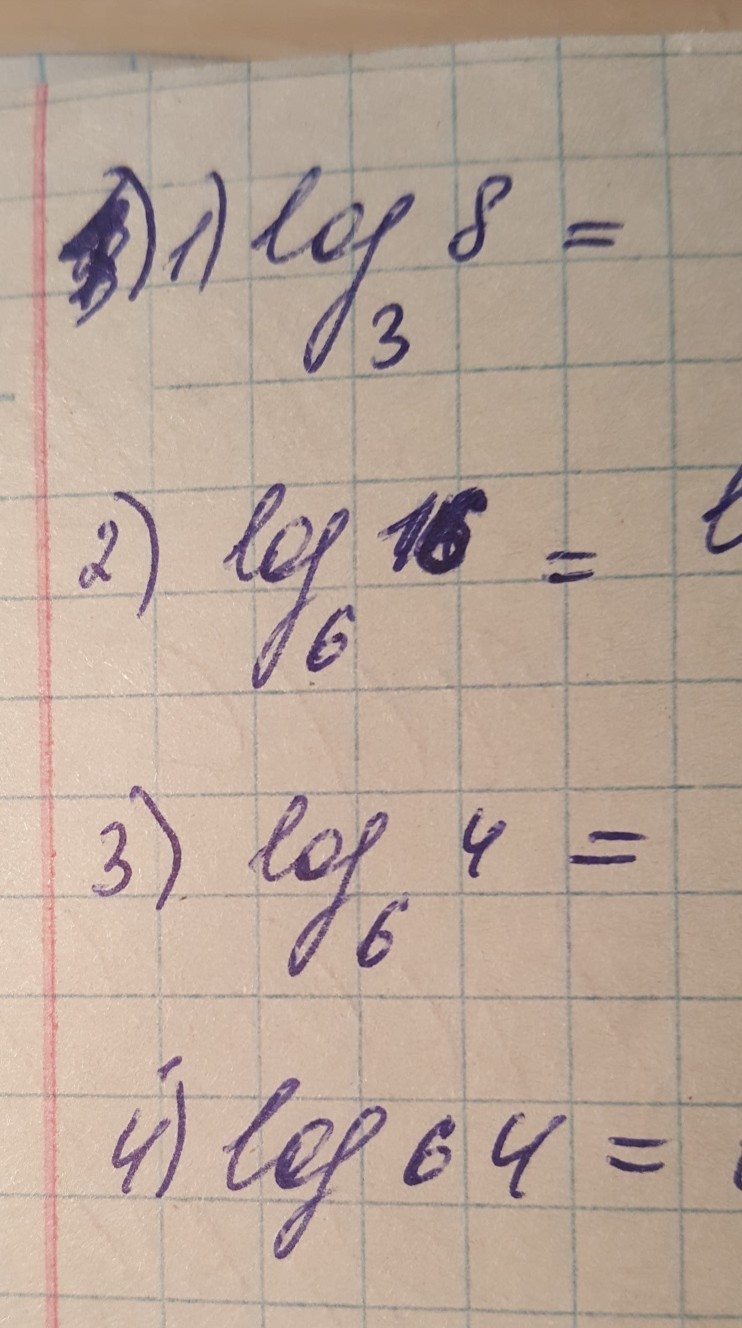 1) log₃ 8 =
2) log₆ 16 =
3) log₆ 4 =
4) log 64 =